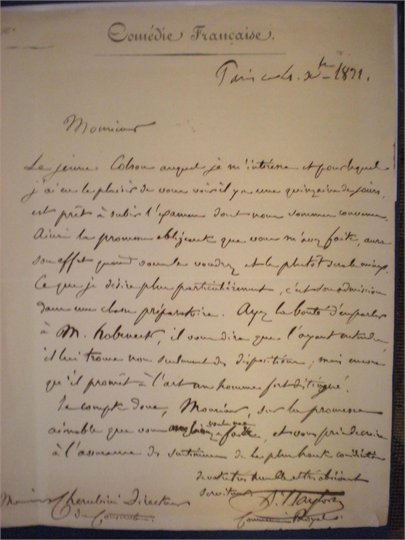 Comédie Française.
Paris ce 1. Xbre 1831.
Monsieur
Le jeune Colson auquel je m'intéresse et pour lequel
j'ai eu le plaisir de vous voir il y a une quinzaine de jours,
est prêt à subir l'examen dont nous sommes convenus.
Ainsi la promesse obligeante que vous m'avez faite, aura
son effet quand vous le voudrez et le plutôt sera le mieux.
Ce que je désire plus particulièrement, c'est son admission
dans une classe préparatoire. Ayez la bonté d'en parler
à M. Habeneck, il vous dira que l'ayant entendu,
il lui trouve non seulement des dispositions, mais encore
qu'il promet à l'art un homme fort distingué.
Je compte donc, Monsieur, sur la promesse
aimable que vous m'avez faite, et vous prie de croire
à l'assurance des sentimens de la plus haute considération
de votre très humble et très obéissant
serviteur
Monsieur Cherubini Directeur
du Conservatoire.